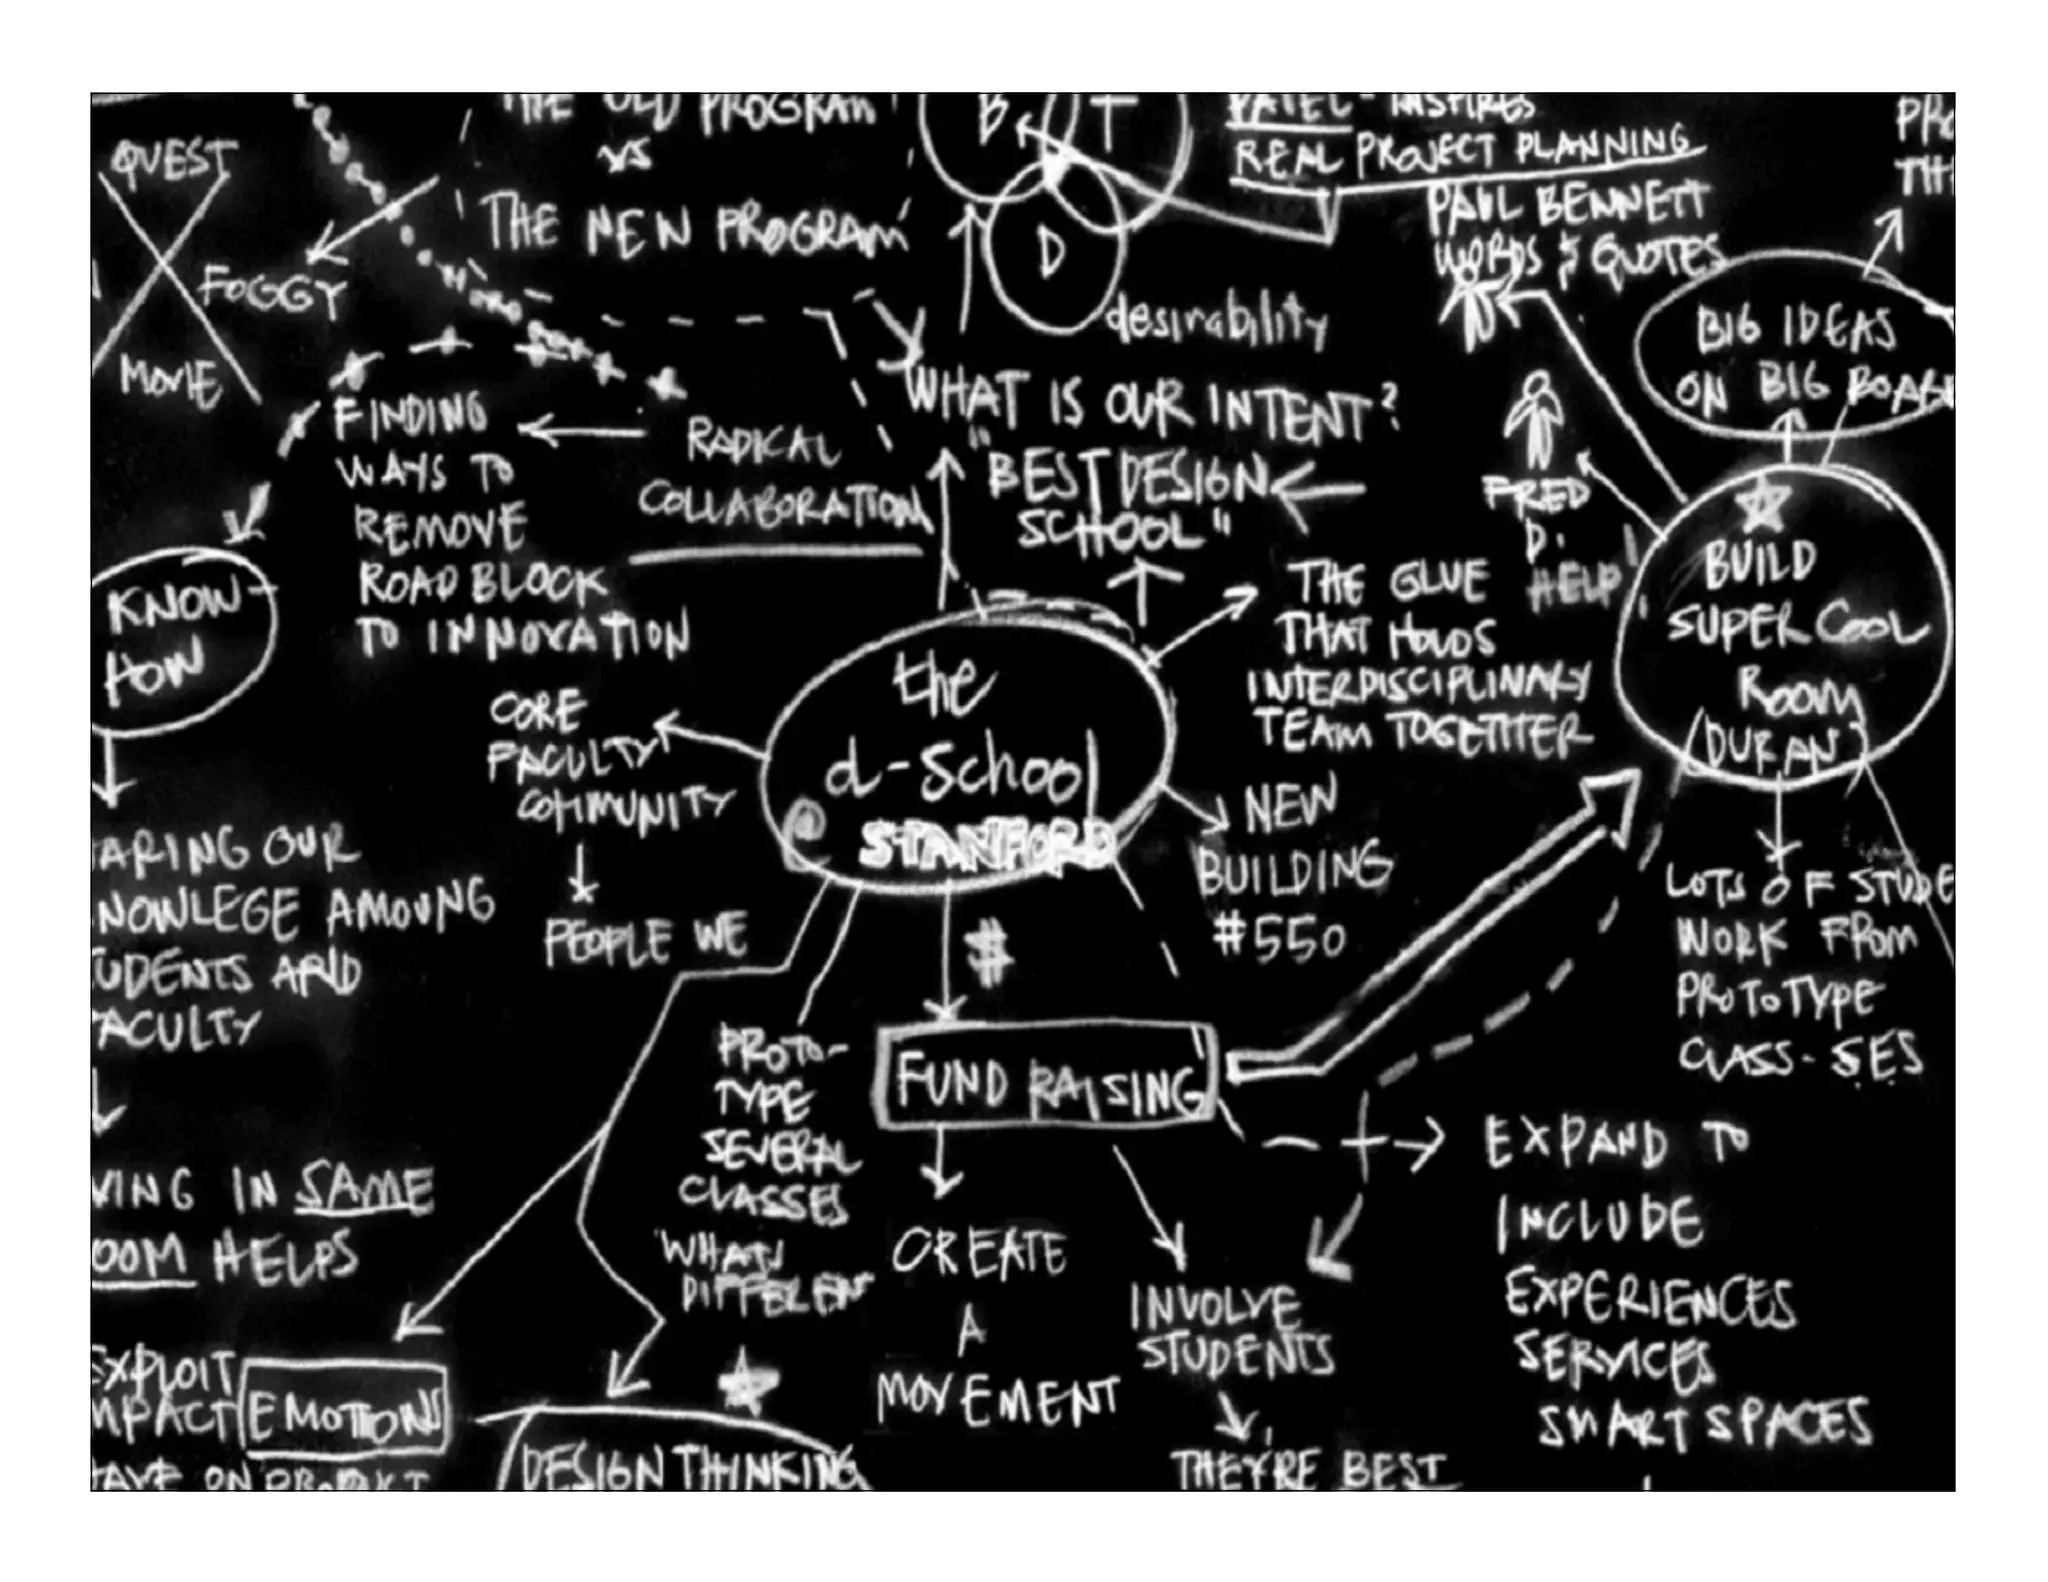 THE OLD PROGRAM
VS
THE NEW PROGRAM
QUEST
FOGGY
MOVIE
B
T
D
desirability
PATEL - INSPIRES
REAL PROJECT PLANNING
PAUL BENNETT
WORDS & QUOTES
BIG IDEAS
ON BIG BOARD
WHAT IS OUR INTENT?
"BEST DESIGN
SCHOOL"
RADICAL
COLLABORATION
FINDING
WAYS TO
REMOVE
ROAD BLOCK
TO INNOVATION
KNOW-
HOW
FRED
D.
HELP
BUILD
SUPER COOL
ROOM
(DURAN)
THE GLUE
THAT HOLDS
INTERDISCIPLINARY
TEAM TOGETHER
the
d-school
STANFORD
CORE
FACULTY
COMMUNITY
PEOPLE WE
NEW
BUILDING
#550
ARING OUR
NOWLEGE AMOUNG
UDENTS AND
ACULTY
VING IN SAME
OOM HELPS
EXPLOIT
MPACT EMOTIONS
HAVE ON PRODUKT
$
FUND RAISING
PROTO-
TYPE
SEVERAL
CLASSES
WHATS
DIFFEREN
DESIGN THINKING
CREATE
A
MOVEMENT
INVOLVE
STUDENTS
THEY'RE BEST
LOTS OF STUDE
WORK FROM
PROTOTYPE
CLASS-SES
EXPAND TO
INCLUDE
EXPERIENCES
SERVICES
SMART SPACES